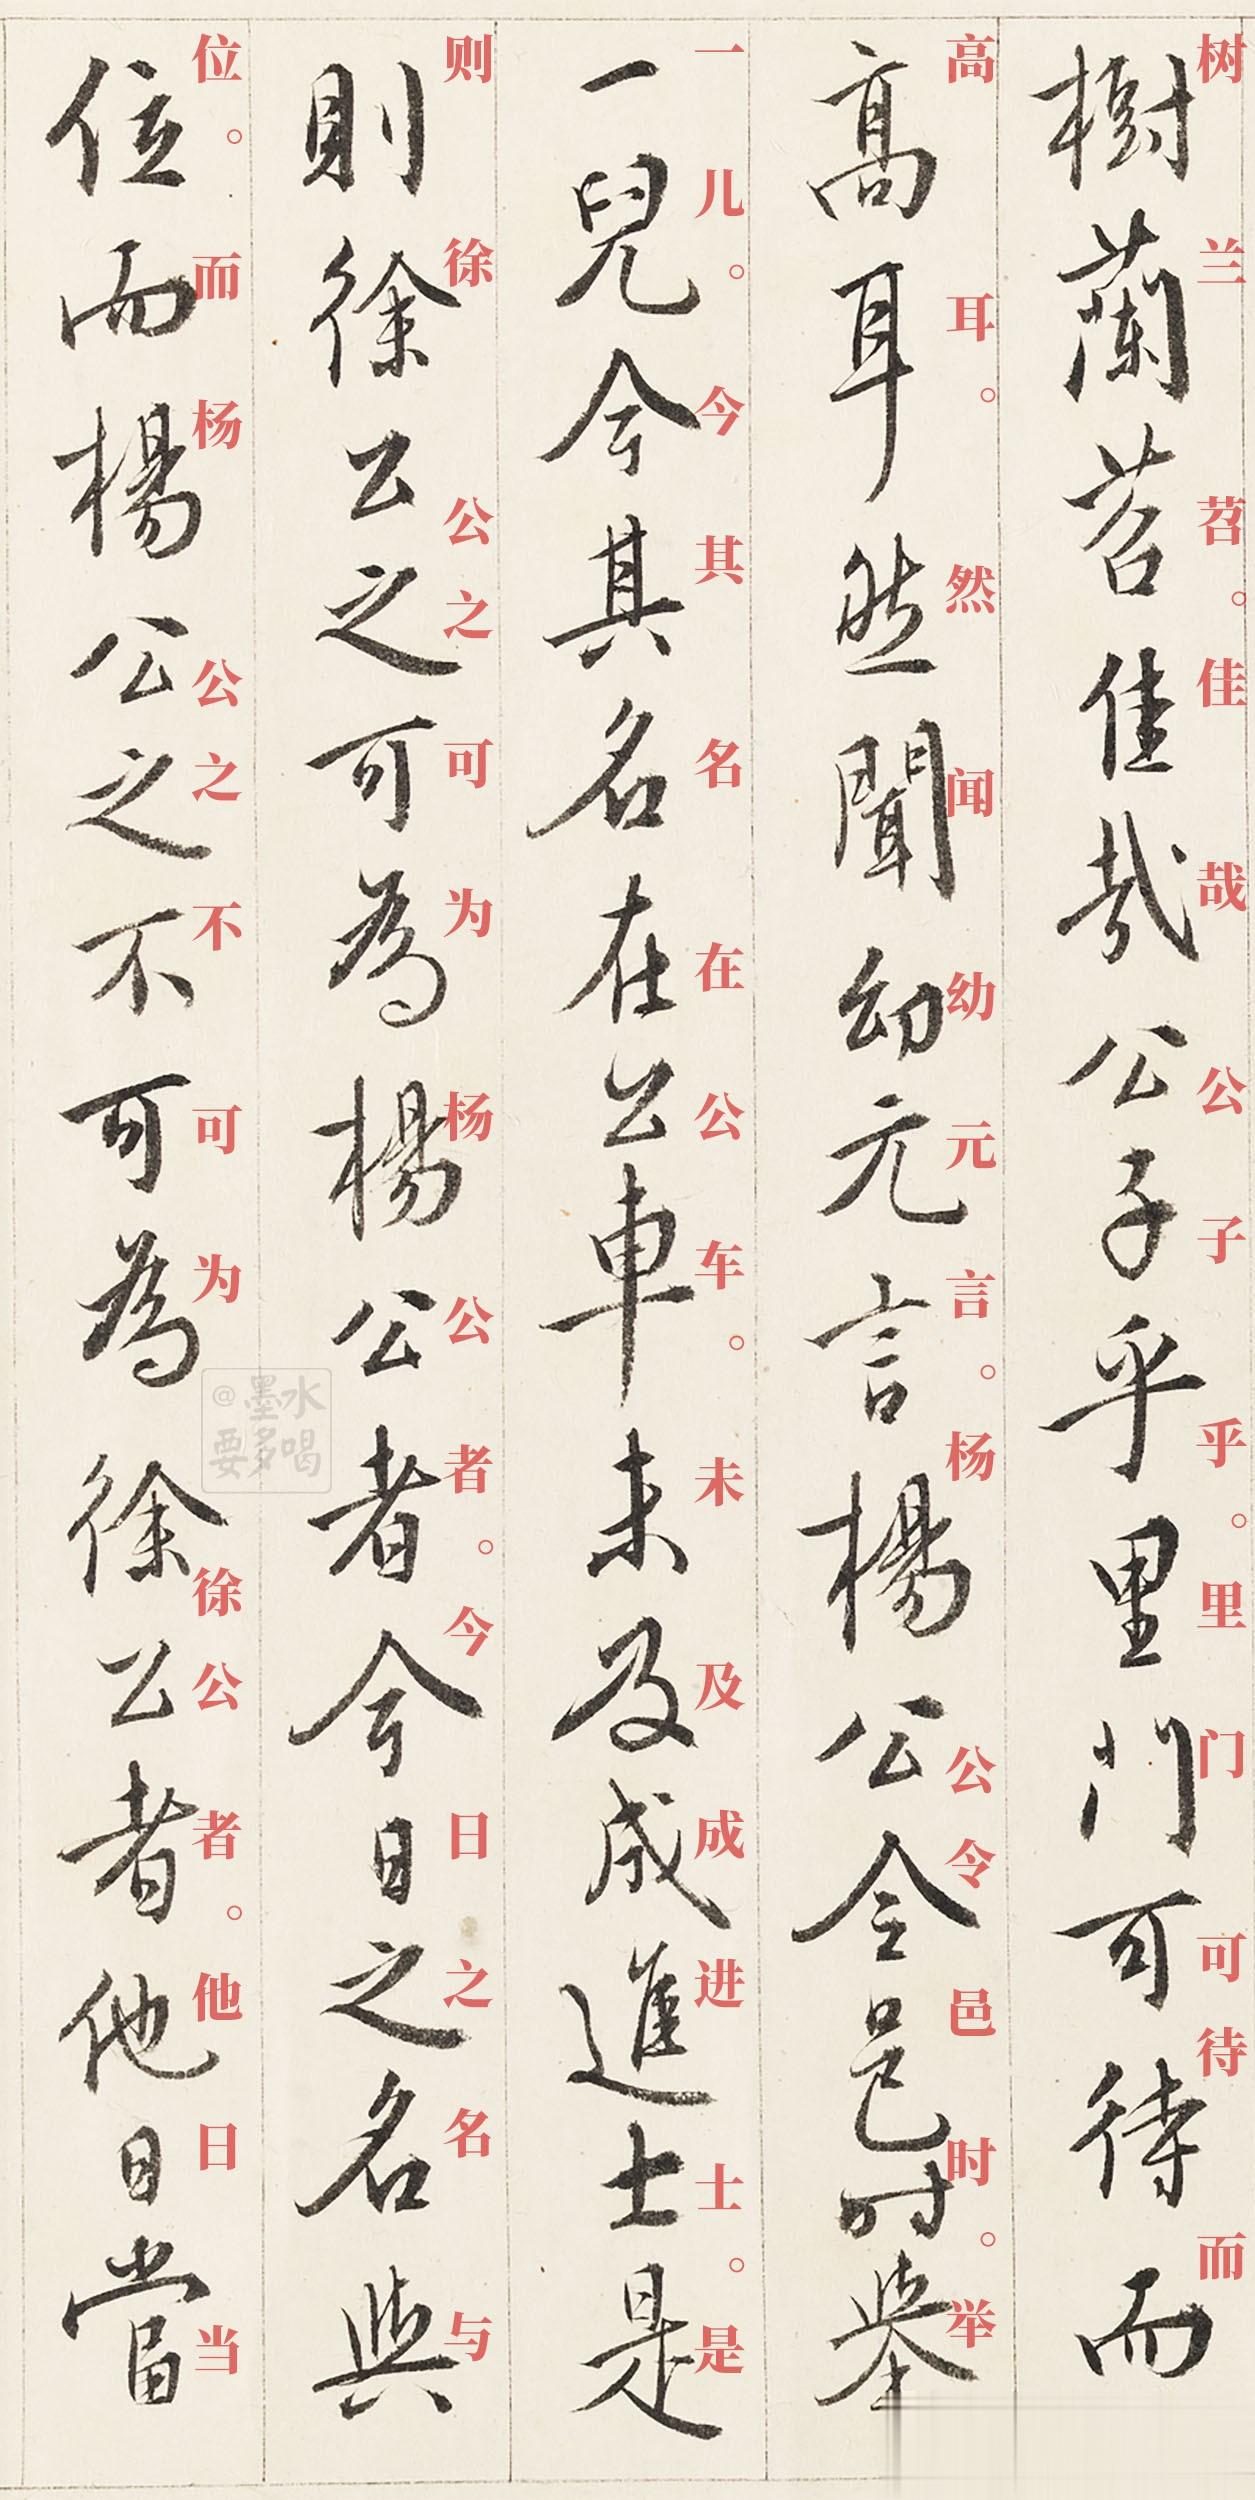 樹蘭苕佳哉公子乎里門可待而
树兰苕。佳哉公子乎。里门可待而
高耳然聞幼元言楊公令邑时举
高耳。然闻幼元言。杨公令邑时。举
一兒今其名在公車未及成進士是
一儿。今其名在公车。未及成进士。是
則徐公之可為楊公者今日之名與
则徐公之可为杨公者。今日之名与
位而楊公之不可為徐公者他日當
位。而杨公之不可为徐公者。他日当
@墨水
要多喝